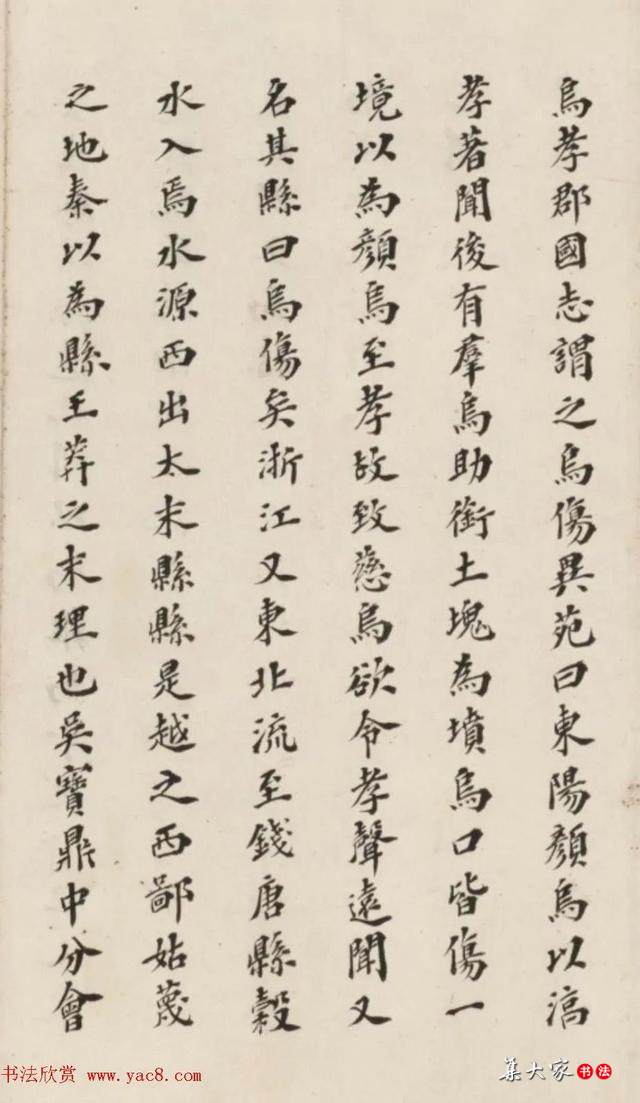 烏孝郡國志謂之烏傷異苑曰東陽顏烏以淳
孝著聞後有羣烏助銜土塊為墳烏口皆傷一
境以為顏烏至孝故致慈烏欲令孝聲遠聞又
名其縣曰烏傷矣浙江又東北流至錢唐縣穀
水入焉水源西出太末縣縣是越之西鄙姑蔑
之地秦以為縣王莽之末理也吳寶鼎中分會
书法欣赏 www.yac8.com
集大家 书法